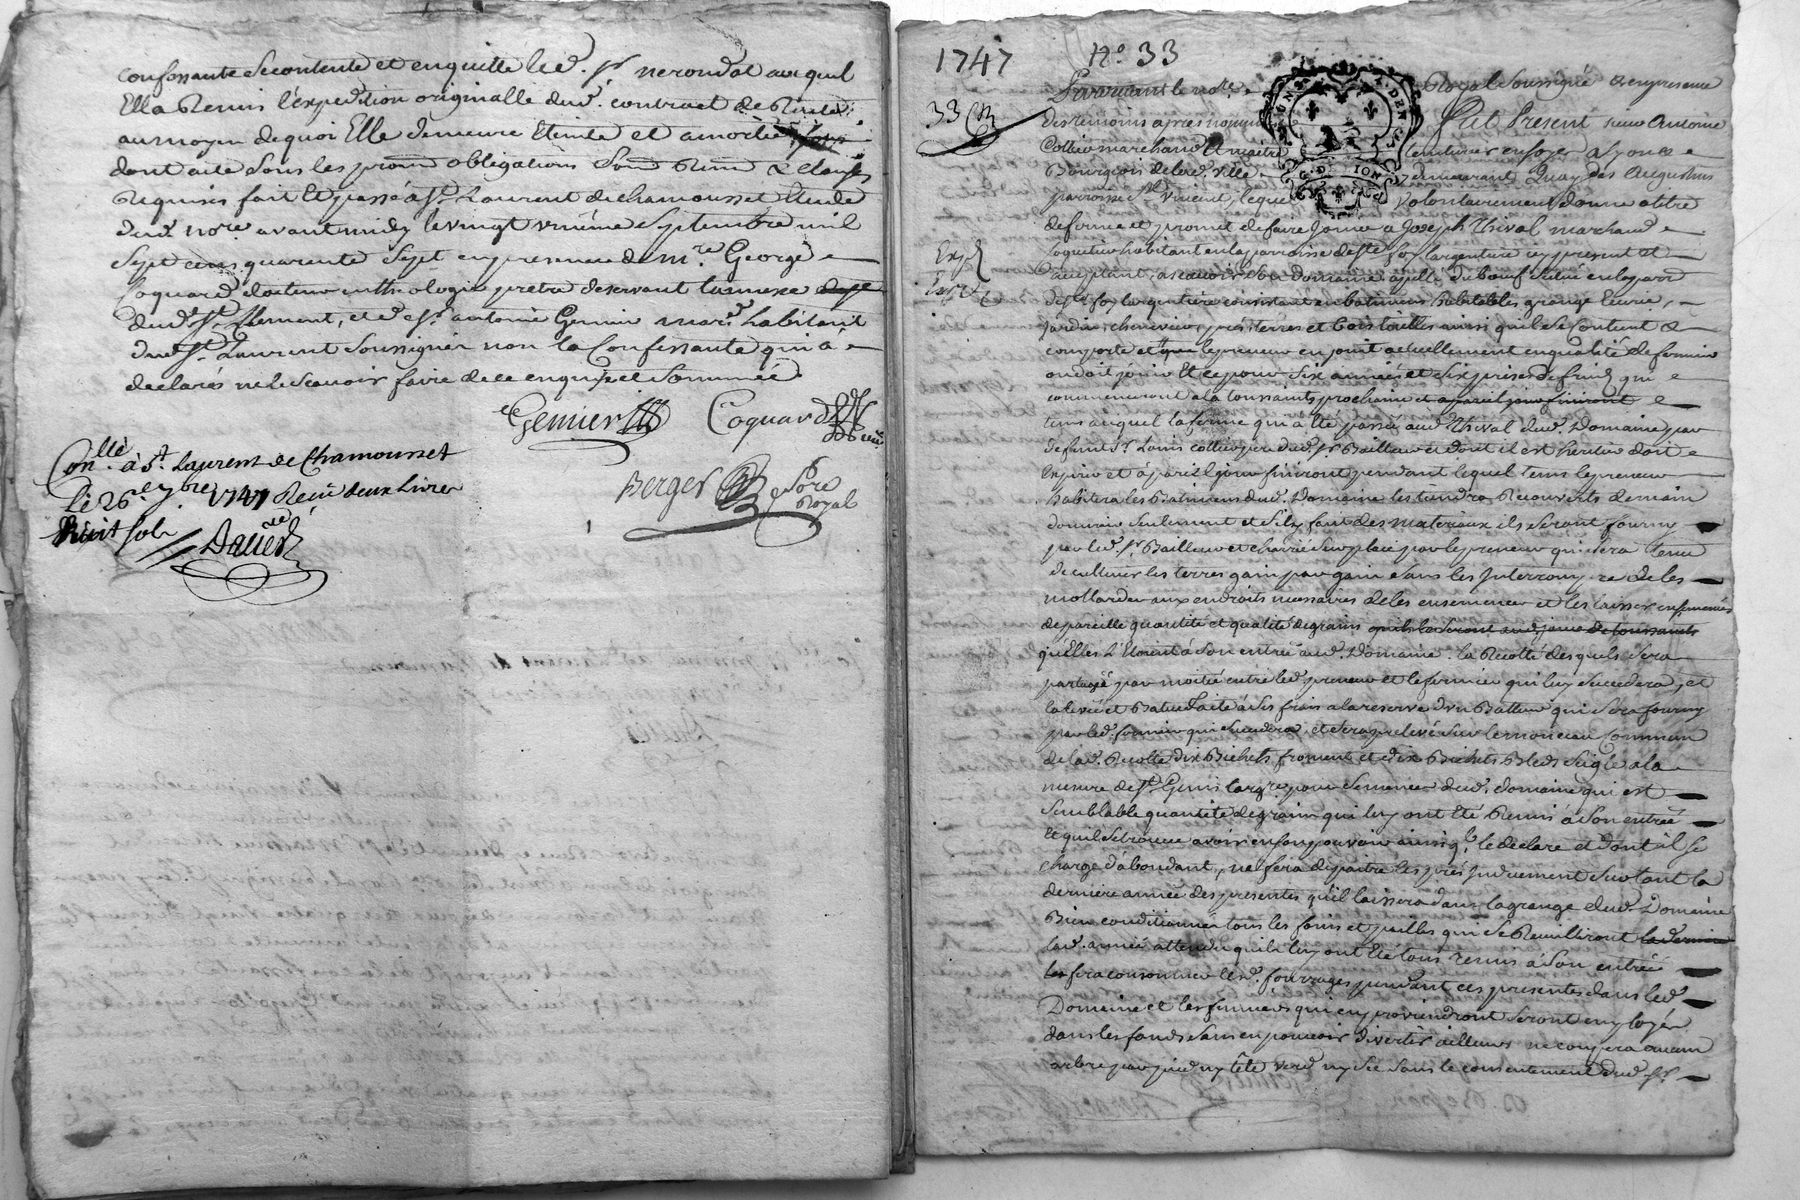 confessante se contente et en quitte led. sr nerondat auquel
Ella Remis l'expedition originalle dud. contract de Rente
au moyen de quoi Elle demeure Eteinte et amortie
dont acte sous les prom obligations soum Renon & clauses
Requises fait Et passé a St. Laurent de chamousset Etude
dud. nore. avant midy le vingt septembre mil
sept cens quarente sept en presence de mre. George
Coquard docteur en theologie pretre deservant lannexe
dud. St. Clement, et de sr. antoine Gemier mard. habitant
dud. St. Laurent soussignés non la Confessante qui a
declarés ne le scavoir faire de ce enquise et sommée
Gemier Coquard
Berger nore Royal
Conllé. a St. Laurent de Chamousset
Le 26e 7bre 1747 Reçu deux Livres
huit sols
1747 No. 33
33
Pardevant le nore. Royal soussigné & en presence
des temoins apres nommés fut Present sieur Antoine
Collier marchand & maitre ceinturier en soye a Lyon &
Bourgeois de lad. ville demeurant Quay des Augustins
parroisse St. vincent, lequel volontairement donne a titre
de ferme et promet de faire jouir a Joseph Thival marchand
habitant en la parroisse de ste foy largentiere icy present et
acceptant, a scavoir d'un domaine apellé du boeuf situé en lad. par
de ste foy largentiere consistant en batimens habitables grange Ecurie,
Jardin, cheneviere, prés, terres et bois tailles ainsi quil se contient &
comporte et que le preneur en jouit actuellement en qualité de fermier
ou doit jouir Et ce pour six années et six prises de fruits qui
commenceront a la toussaints prochaine et a pareil jour finiront
tems auquel la ferme qui a Eté passée aud. Thival dud. Domaine par
defunt sr. Louis collier pere dud. sr Bailleur et dont il est heritier doit
expirer et a pareil jour finiront pendant lequel tems le preneur
habitera les Batimens dud. Domaine les tiendra Recouverts de main
dud. seulement et s'il y faut des materiaux ils seront fournis
par led. sr Bailleur et charriés sur place par le preneur qui sera tenu
de cultiver les terres gain par gain sans les Interrompre de les
mollarder aux endroits necessaires de les ensemencer et les laisser ensemencés
de pareille quantité et qualité de grains
qu'Elles L'Etoient a son entrée aud. Domaine. la Recolte desquels sera
partagé par moitié entre led. preneur et le fermier qui luy succedera, et
la levée et Batue faite a ses frais a la reserve d'un Batteur qui sera fourny
par led. fermier qui succedera, et sera prelevé sur le monceau Commun
de lad. Recolte dix Bichets froment et dix Bichets Bled seigle a la
mesure de St. Genis largre. pour semence dud. domaine qui est
semblable quantité de grains qui luy ont Eté Remis a son entrée
Et quil se trouve avoir en son pouvoir ainsi ql. le declare et dont il se
charge d'abondant, ne fera depaitre les prés induement surtout la
derniere année des presentes qu'il laissera dans la grange dud. Domaine
Bien conditionnés tous les foins et pailles qui se Recuilliront
lad. année attendu qu'ils luy ont Eté tous remis a son entrée
les fera consommer led. fourrages pendant ces presentes dans led.
Domaine et les fumiers qui en proviendront seront employés
dans les fonds sans en pouvoir divertir ailleurs ne coupera aucun
arbre par pied ny tête verd ny sec sans le consentement dud. sr.